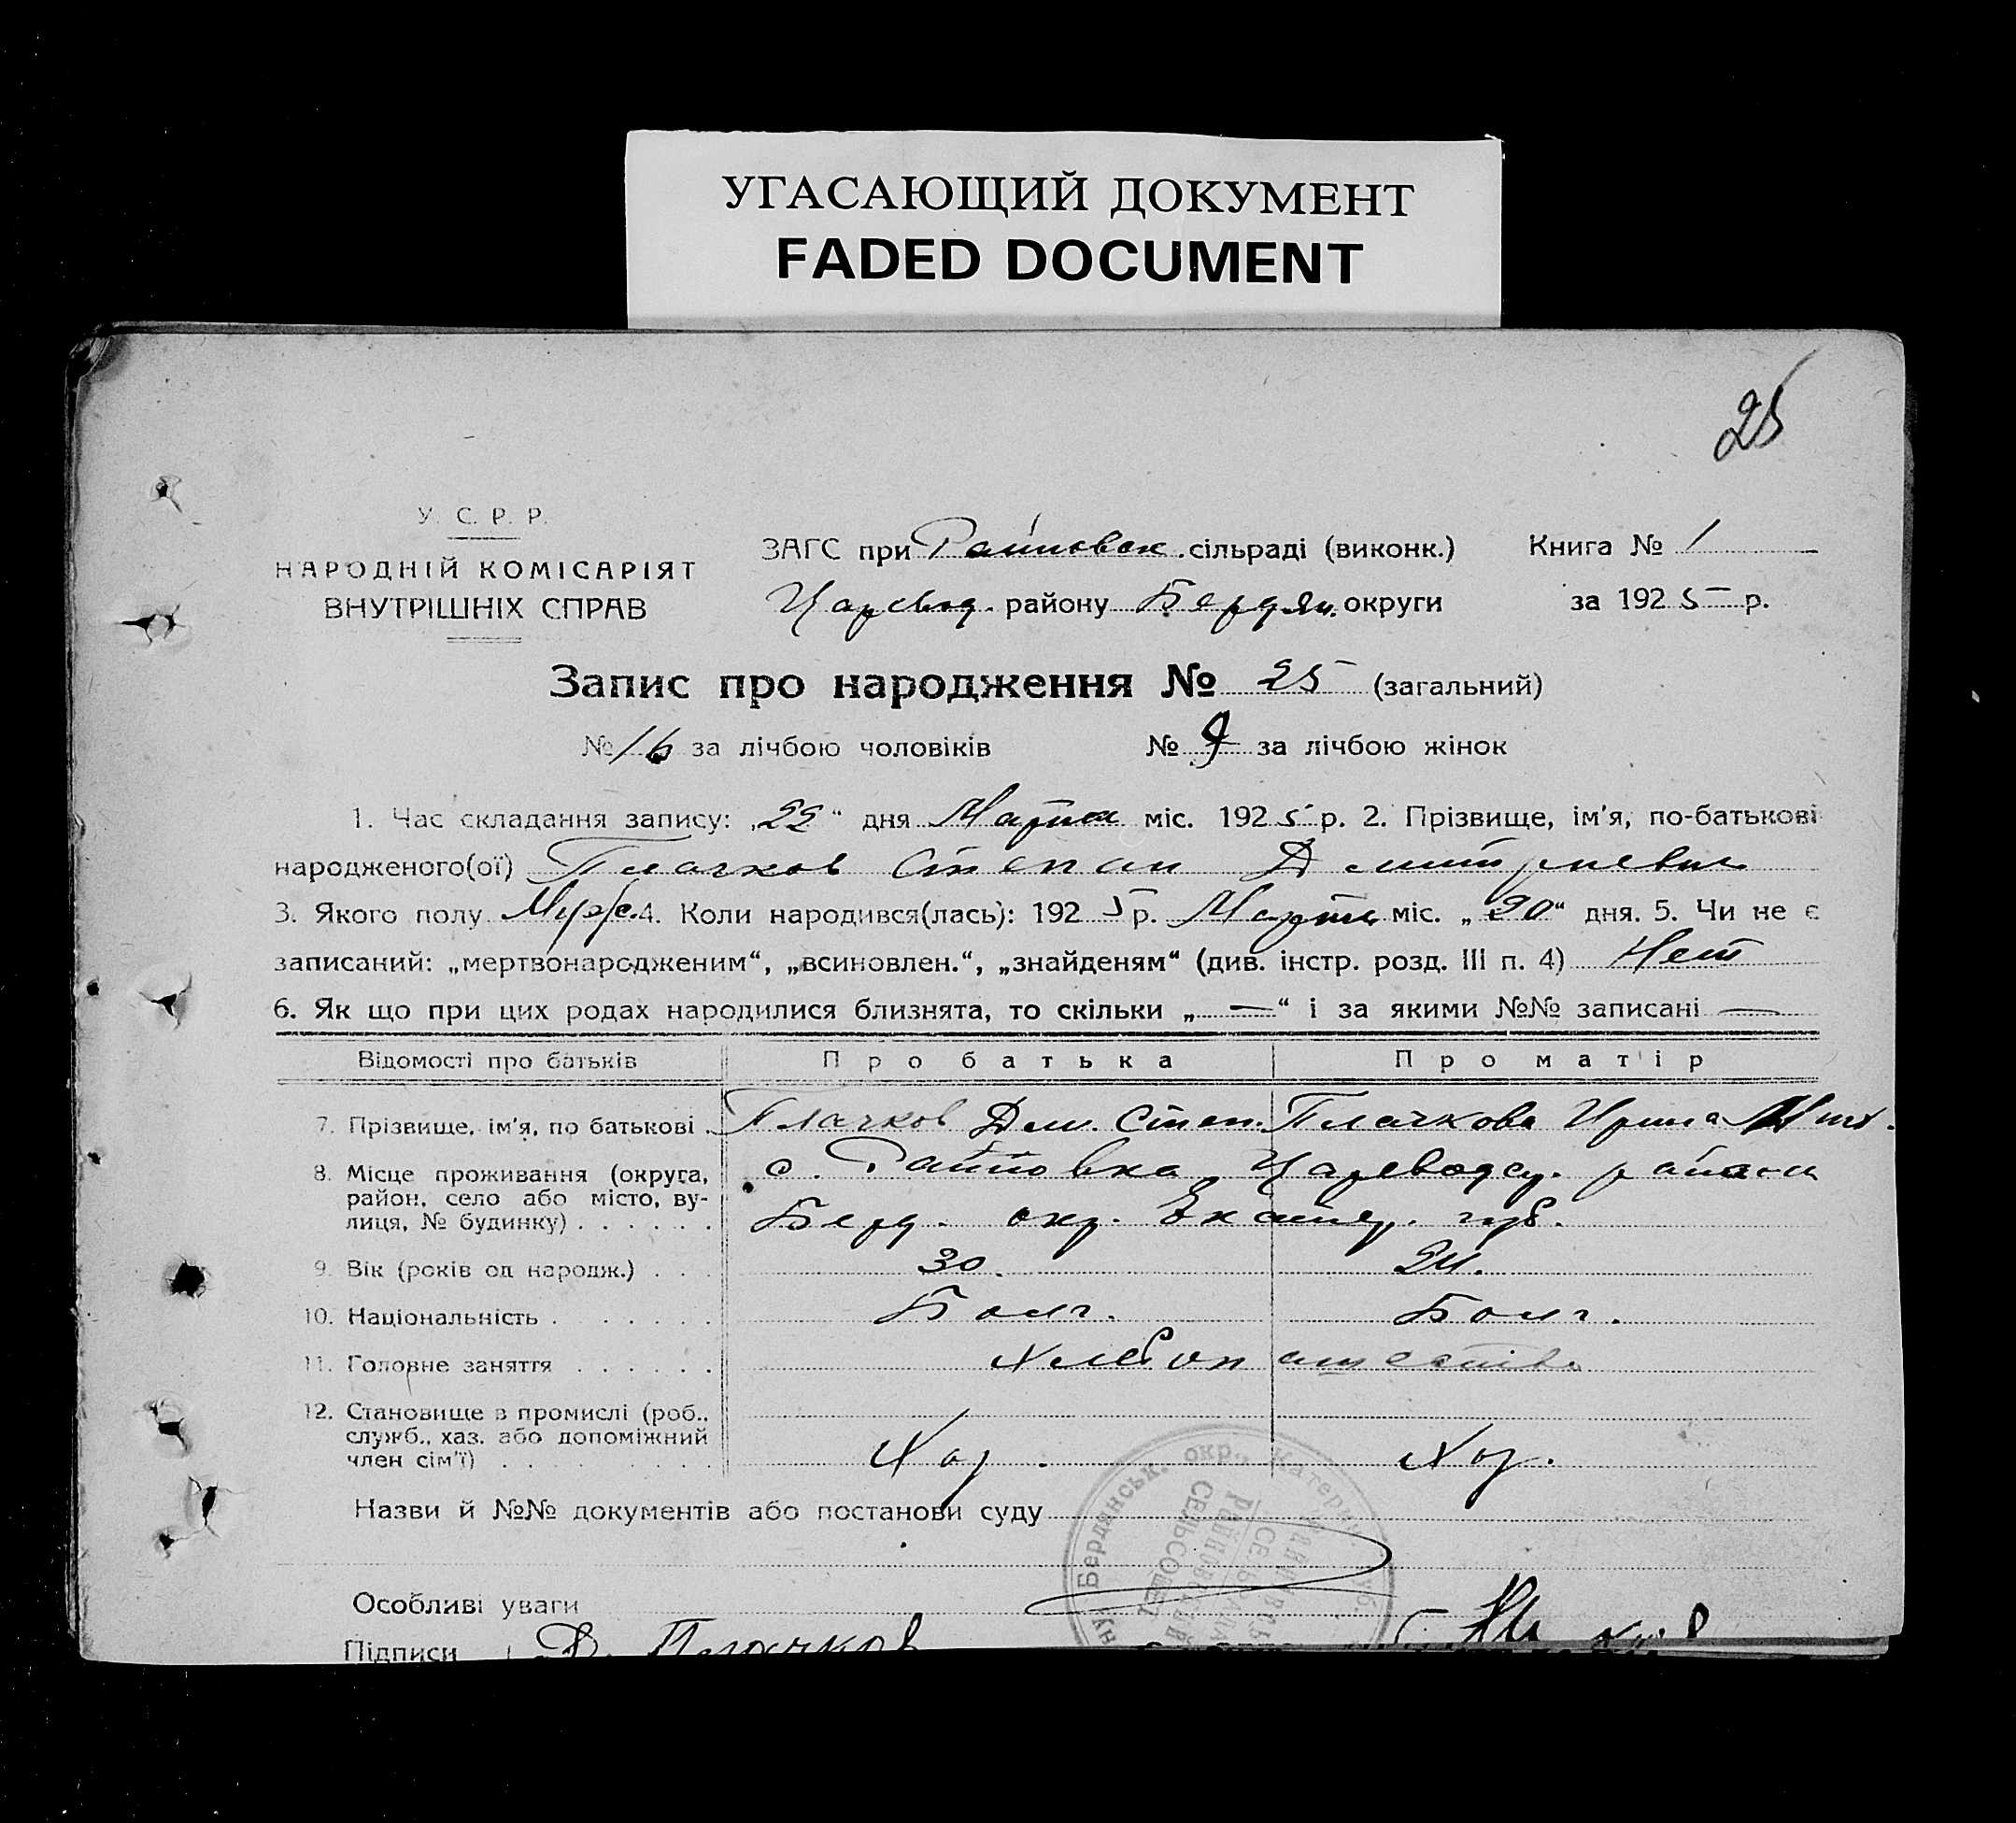 УГАСАЮЩИЙ ДОКУМЕНТ
FADED DOCUMENT
25
У. С. Р. Р.
НАРОДНІЙ КОМІСАРІЯТ
ВНУТРІШНІХ СПРАВ
ЗАГС при Райновск. сільраді (виконк.) Книга № 1
Царевод. району Бердян. округи за 1925 р.
Запис про народження № 25 (загальний)
№ 16 за лічбою чоловіків № 9 за лічбою жінок
1. Час складання запису: „22“ дня Марта міс. 1925 р. 2. Прізвище, ім'я, по-батькові
народженого(ої) Плачков Степан Дмитриевич
3. Якого полу Муж. 4. Коли народився(лась): 1925 р. Марта міс. „20“ дня. 5. Чи не є
записаний: „мертвонародженим“, „всиновлен.“, „знайденям“ (див. інстр. розд. III п. 4) Нет
6. Як що при цих родах народилися близнята, то скільки „—“ і за якими №№ записані —
Відомості про батьків Про батька Про матір
7. Прізвище, ім'я, по батькові . Плачков Дм. Степ. Плачкова Ирина
8. Місце проживання (округа, район, село або місто, вулиця, № будинку) . . . . . . с. Райновка Цареводар. района
Берд. окр. Екатер. губ.
9. Вік (років од народж.) . . . 30. 24.
10. Національність . . . . . . . Болг. Болг.
11. Головне заняття . . . . . . Хлебопашество
12. Становище в промислі (роб., служб., хаз. або допоміжний член сім'ї) . . . . . . . . . Хоз. Хоз.
Назви й №№ документів або постанови суду
Бердянськ. окр., Катерин. губ.
РАЙНОВСКИЙ
СЕЛЬСОВЕТ
Особливі уваги
Підписи Д. Плачков